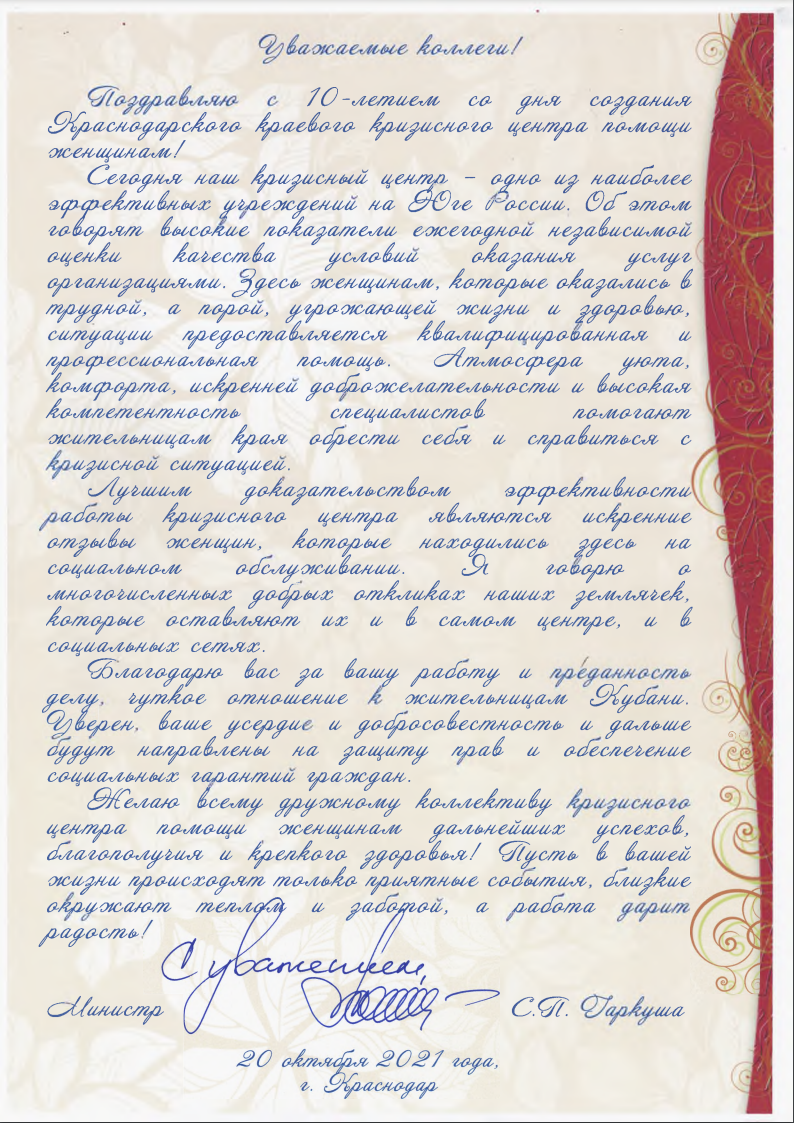 Уважаемые коллеги!
Поздравляю с 10-летием со дня создания
Краснодарского краевого кризисного центра помощи
женщинам!
Сегодня наш кризисный центр – одно из наиболее
эффективных учреждений на Юге России. Об этом
говорят высокие показатели ежегодной независимой
оценки качества условий оказания услуг
организациями. Здесь женщинам, которые оказались в
трудной, а порой, угрожающей жизни и здоровью,
ситуации предоставляется квалифицированная и
профессиональная помощь. Атмосфера уюта,
комфорта, искренней доброжелательности и высокая
компетентность специалистов помогают
жительницам края обрести себя и справиться с
кризисной ситуацией.
Лучшим доказательством эффективности
работы кризисного центра являются искренние
отзывы женщин, которые находились здесь на
социальном обслуживании. Я говорю о
многочисленных добрых откликах наших землячек,
которые оставляют их и в самом центре, и в
социальных сетях.
Благодарю вас за вашу работу и преданность
делу, чуткое отношение к жительницам Кубани.
Уверен, ваше усердие и добросовестность и дальше
будут направлены на защиту прав и обеспечение
социальных гарантий граждан.
Желаю всему дружному коллективу кризисного
центра помощи женщинам дальнейших успехов,
благополучия и крепкого здоровья! Пусть в вашей
жизни происходят только приятные события, близкие
окружают теплом и заботой, а работа дарит
радость!
С уважением,
Министр С.П. Гаркуша
20 октября 2021 года,
г. Краснодар